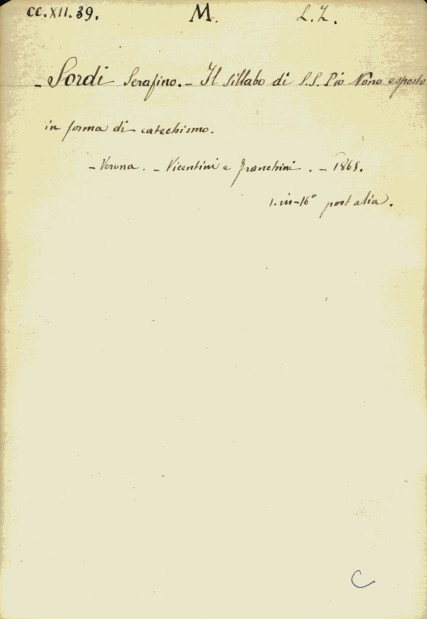 CC.XII.39. M. L.Z.
- Sordi Serafino. - Il Sillabo di S.S. Pio Nono esposto
in forma di catechismo.
- Verona. - Vicentini e Franchini. - 1865.
1. in-16° post alia.
C